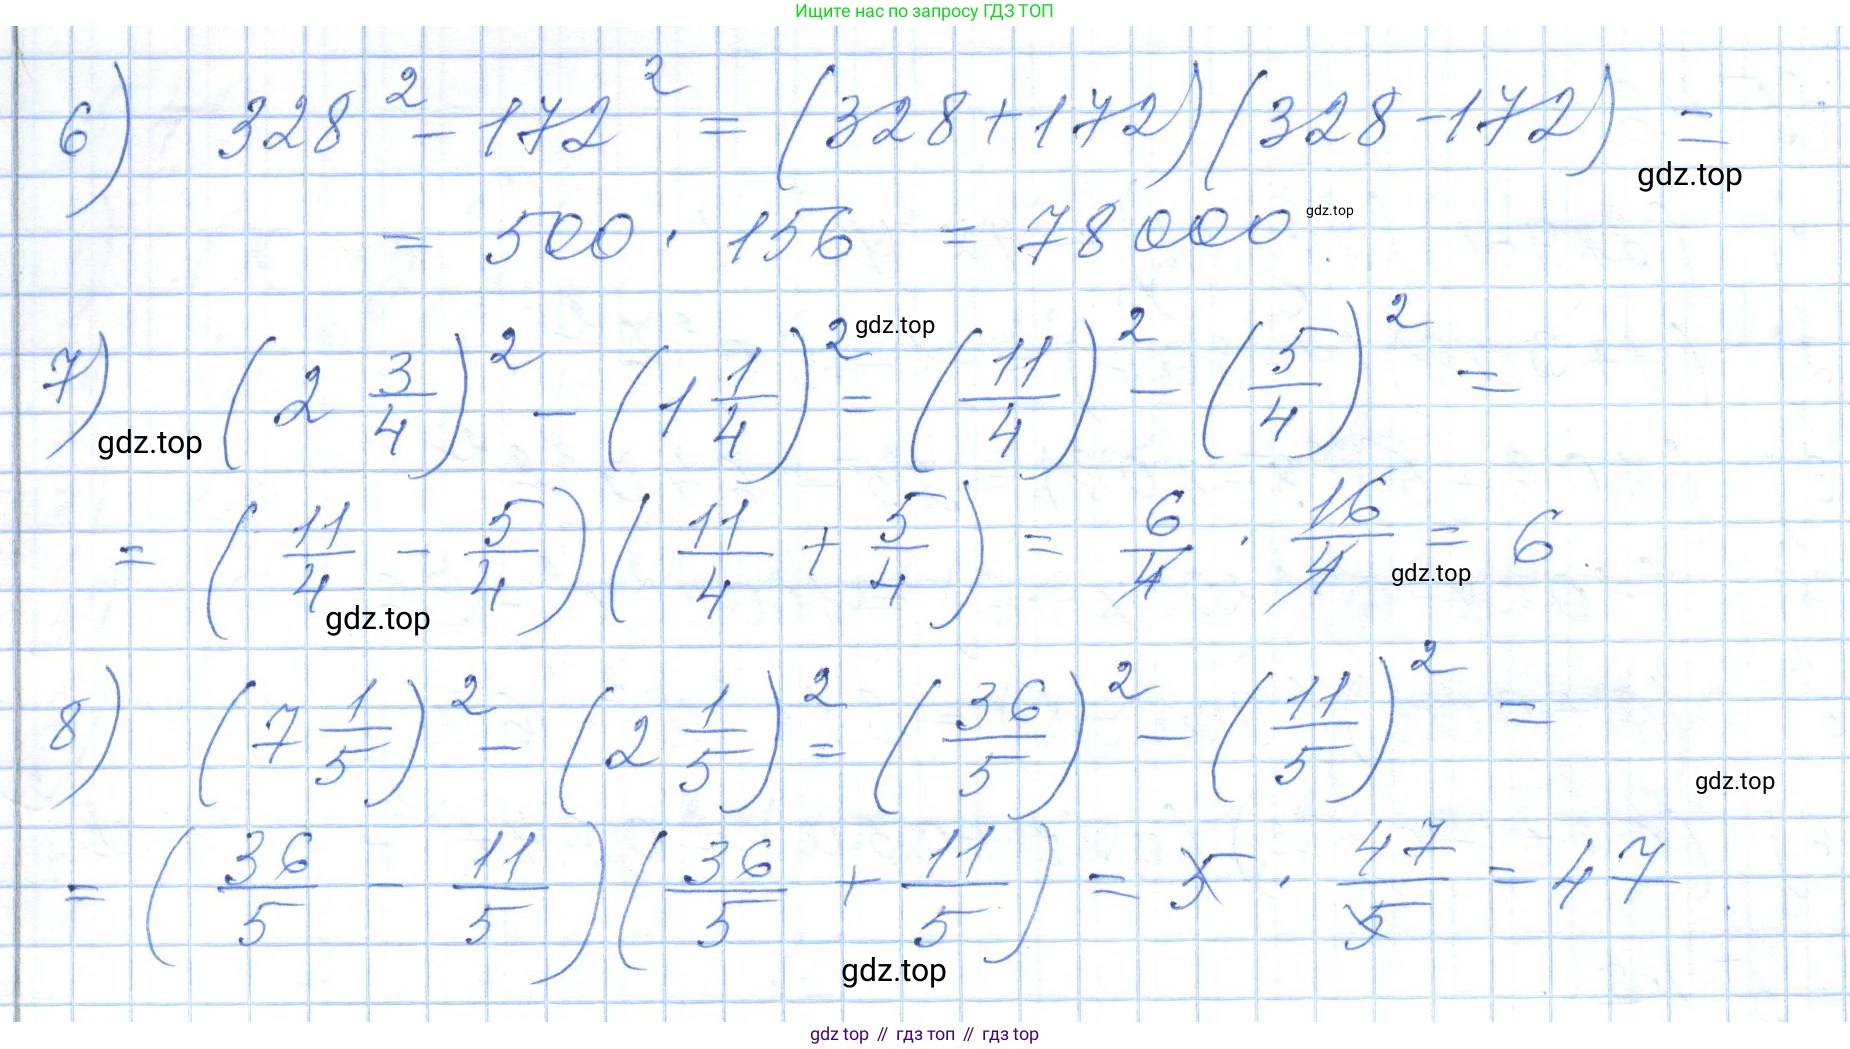 Ищите нас по запросу ГДЗ ТОП
6) 328² - 172² = (328 + 172)(328 - 172) =
gdz.top
= 500 · 156 = 78000
gdz.top
gdz.top
7) (2 3/4)² - (1 1/4)² = (11/4)² - (5/4)² =
gdz.top
= (11/4 - 5/4)(11/4 + 5/4) = 6/4 · 16/4 = 6.
gdz.top
gdz.top
8) (7 1/5)² - (2 1/5)² = (36/5)² - (11/5)² =
gdz.top
= (36/5 - 11/5)(36/5 + 11/5) = 5 · 47/5 = 47.
gdz.top
gdz top // гдз топ // гдз top